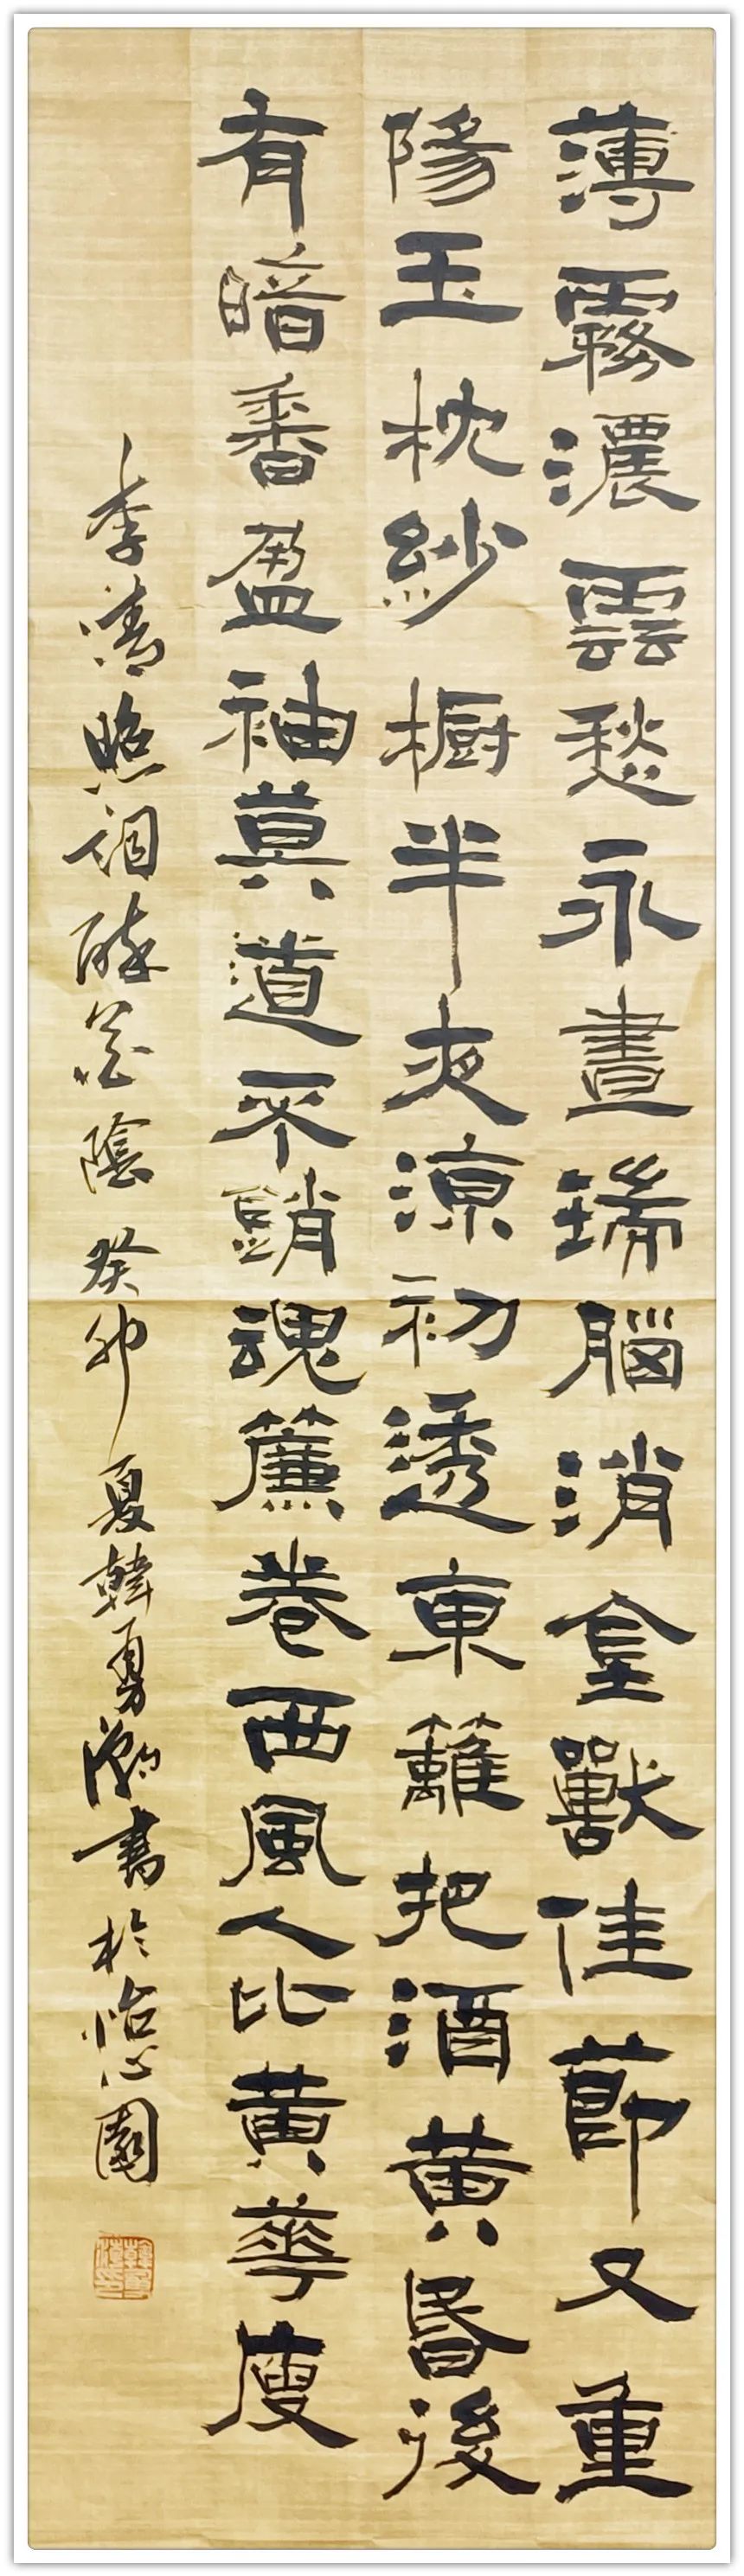 薄霧濃雲愁永晝瑞腦消金獸佳節又重
陽玉枕紗橱半夜涼初透東籬把酒黃昏後
有暗香盈袖莫道不銷魂簾卷西風人比黃華瘦
李清照詞醉花陰 癸卯夏韓勇書於怡心園